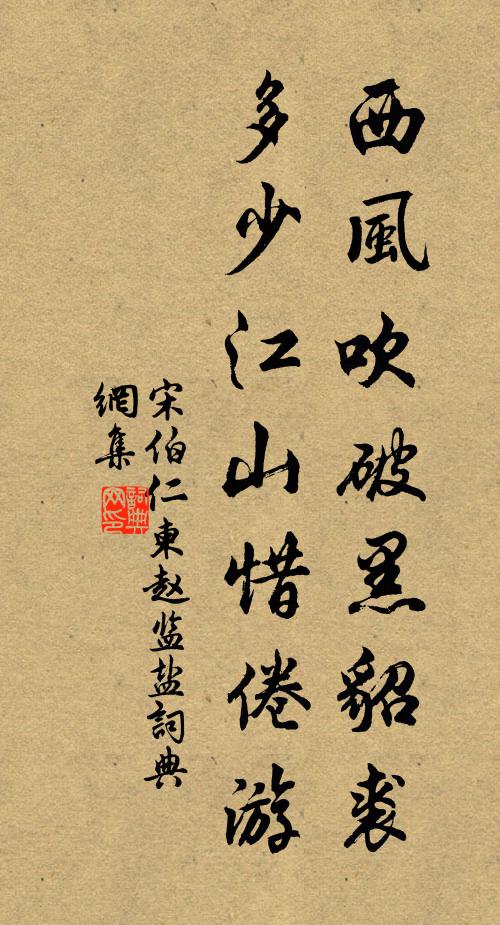 西風吹破黑貂裘
多少江山惜倦游
宋伯仁東赵监盐詞典
網集
詞典網印